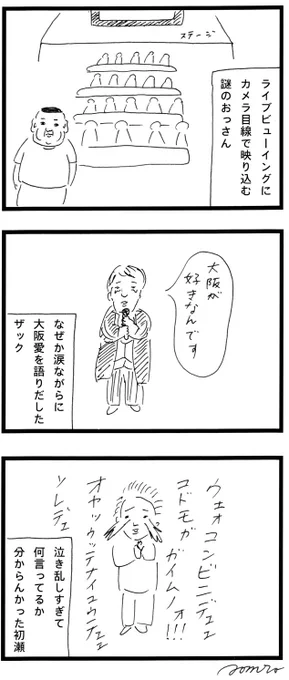 ステージ
ライブビューイングに
カメラ目線で映り込む
謎のおっさん
大阪が
好きなんです
なぜか涙ながらに
大阪愛を語りだした
ザック
ウェォコンビニデュュ
コドモガ
ガイムノォ!!!
オヤッゥッテアイュウンデュュ
ソレデュ
泣き乱しすぎて
何言ってるか
分からんかった初瀬